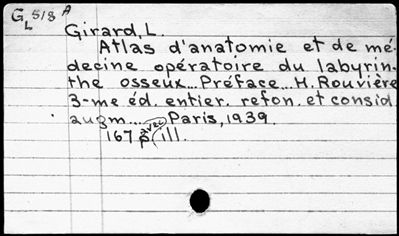 G 518 A
L
Girard, L.
Atlas d'anatomie et de mé-
decine opératoire du labyrin-
the osseux... Préface... H. Rouvière
3-me éd. entier. refon. et consid.
augm.... Paris, 1939.
167 p. (avec ill.